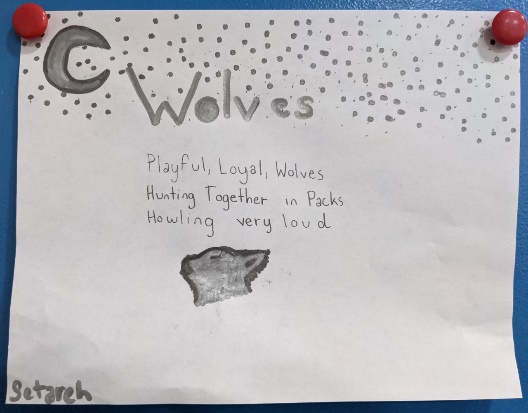 Wolves
Playful, Loyal, Wolves
Hunting Together in Packs
Howling very loud
Setareh